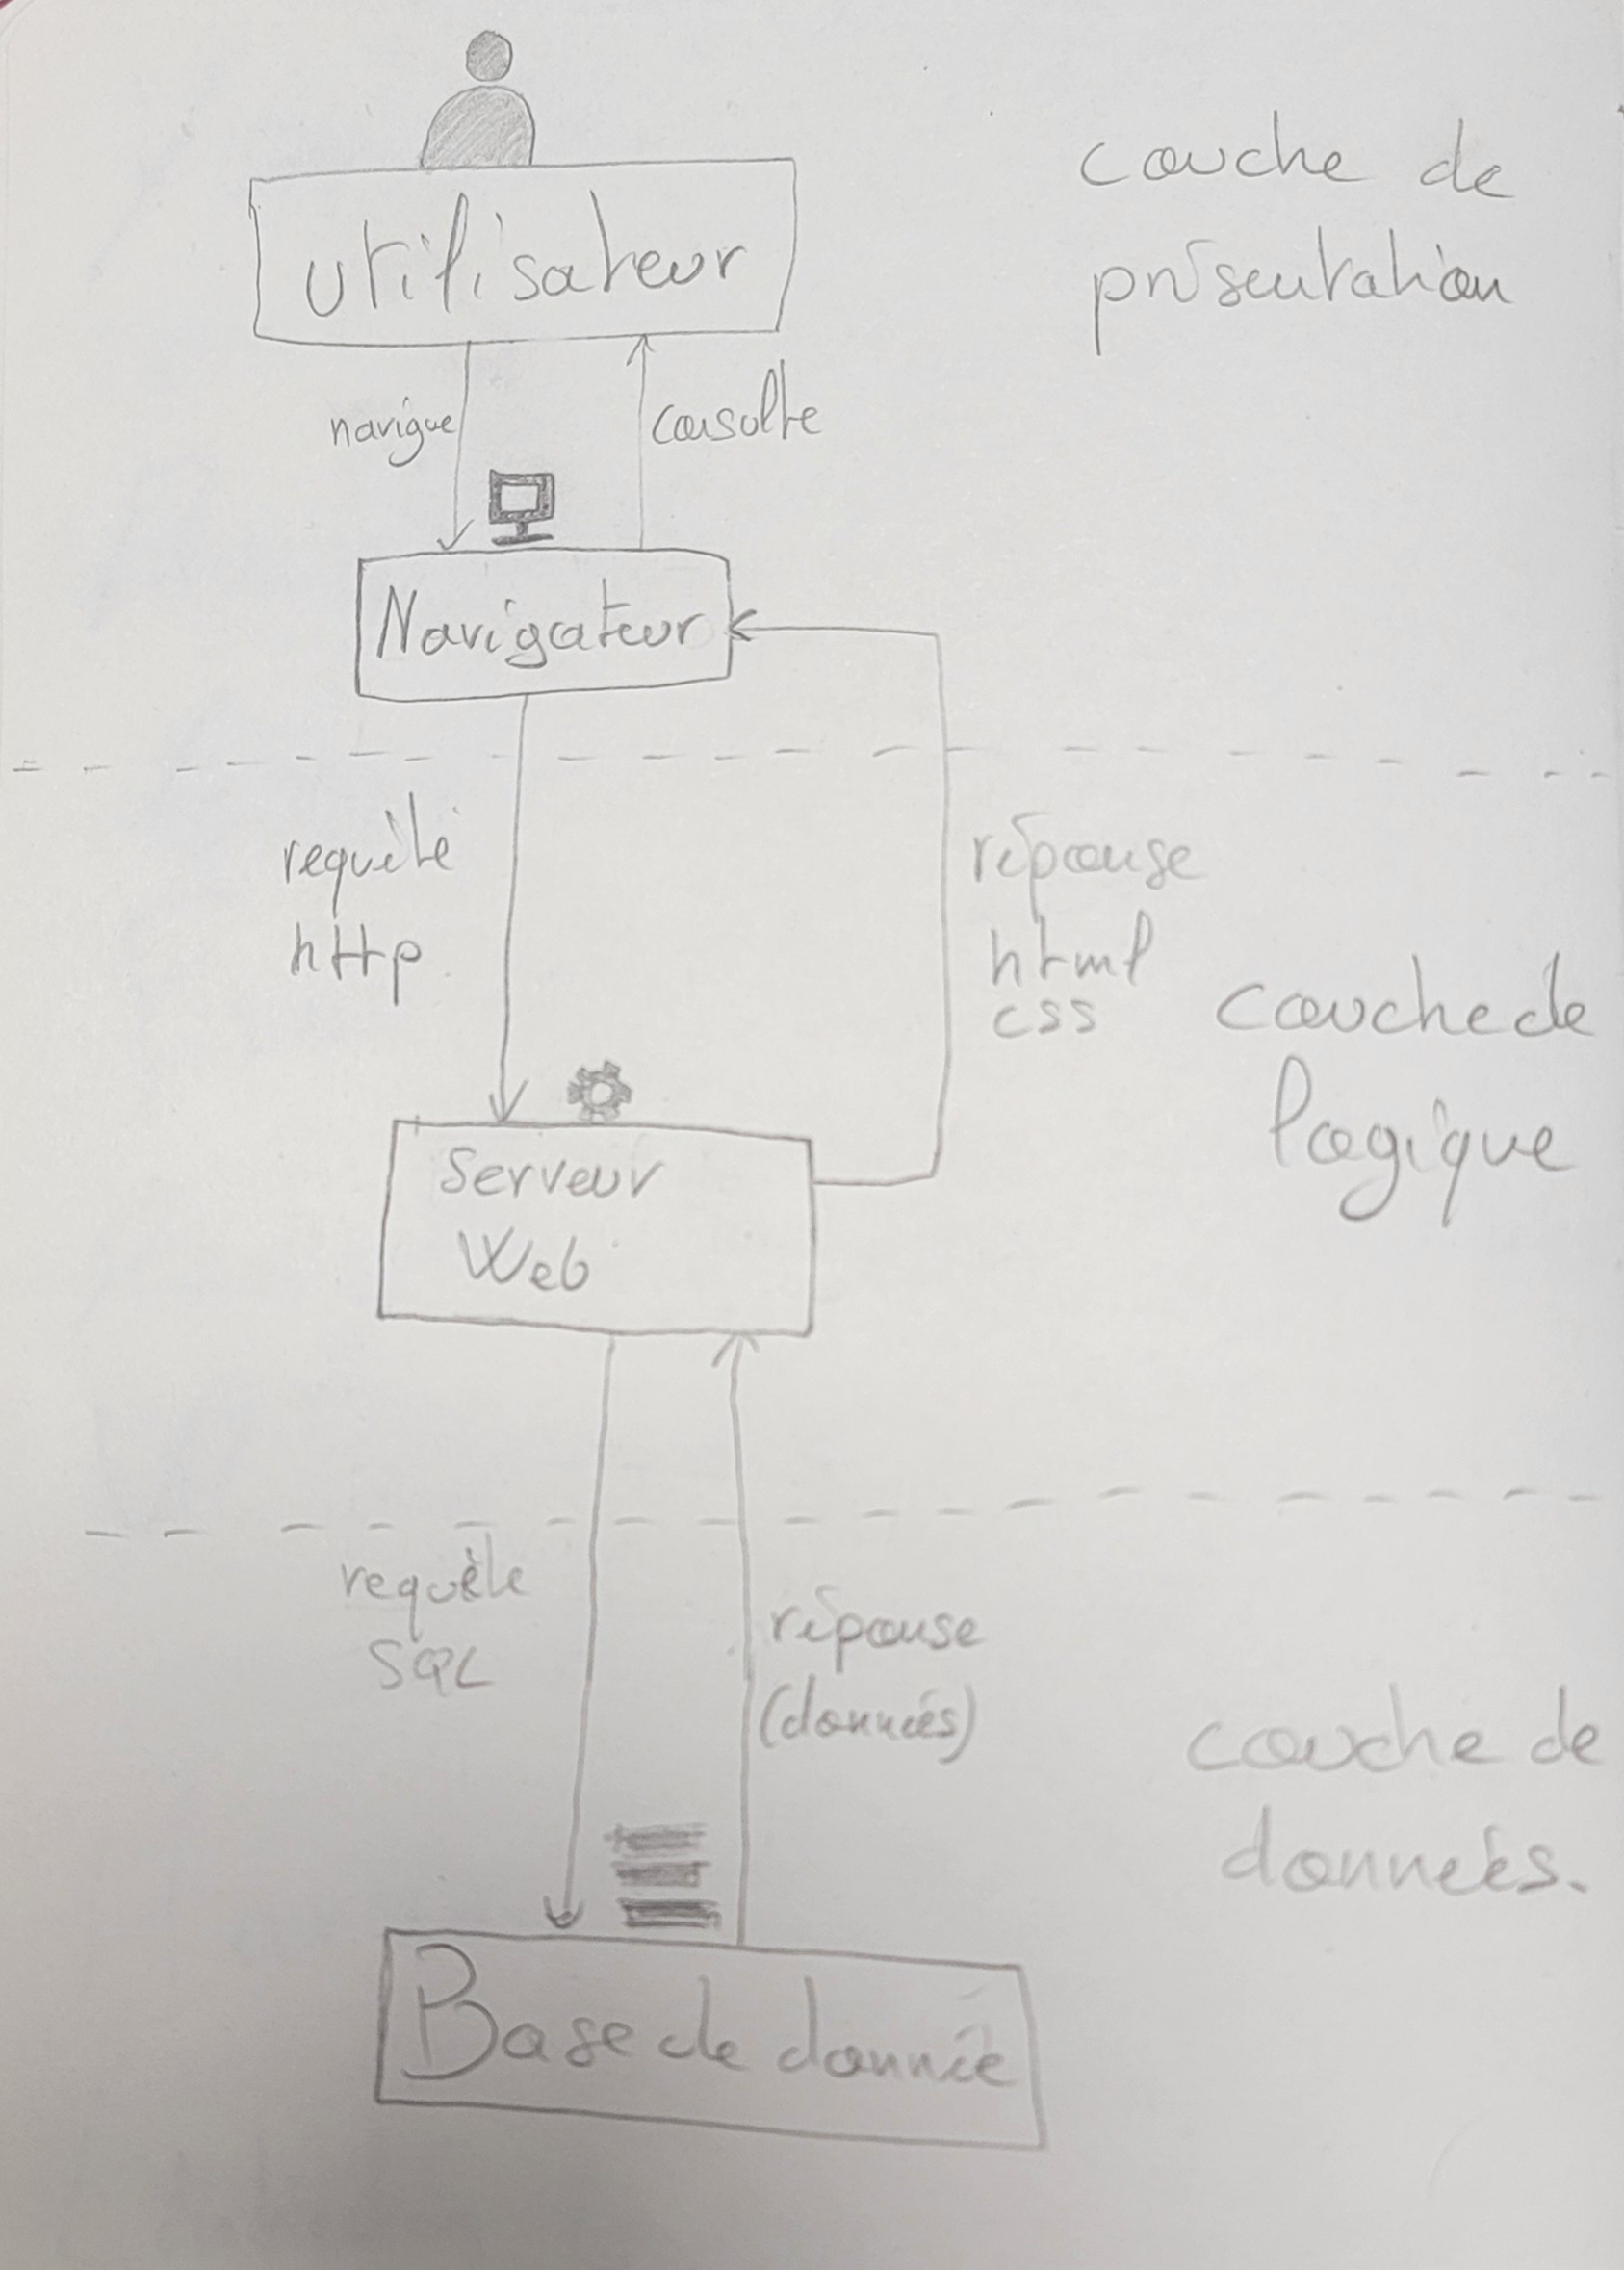 couche de
présentation
utilisateur
navigue
consulte
Navigateur
requête
http
réponse
html
css
couche de
logique
Serveur
Web
requête
SQL
réponse
(données)
couche de
données.
Base de donnée